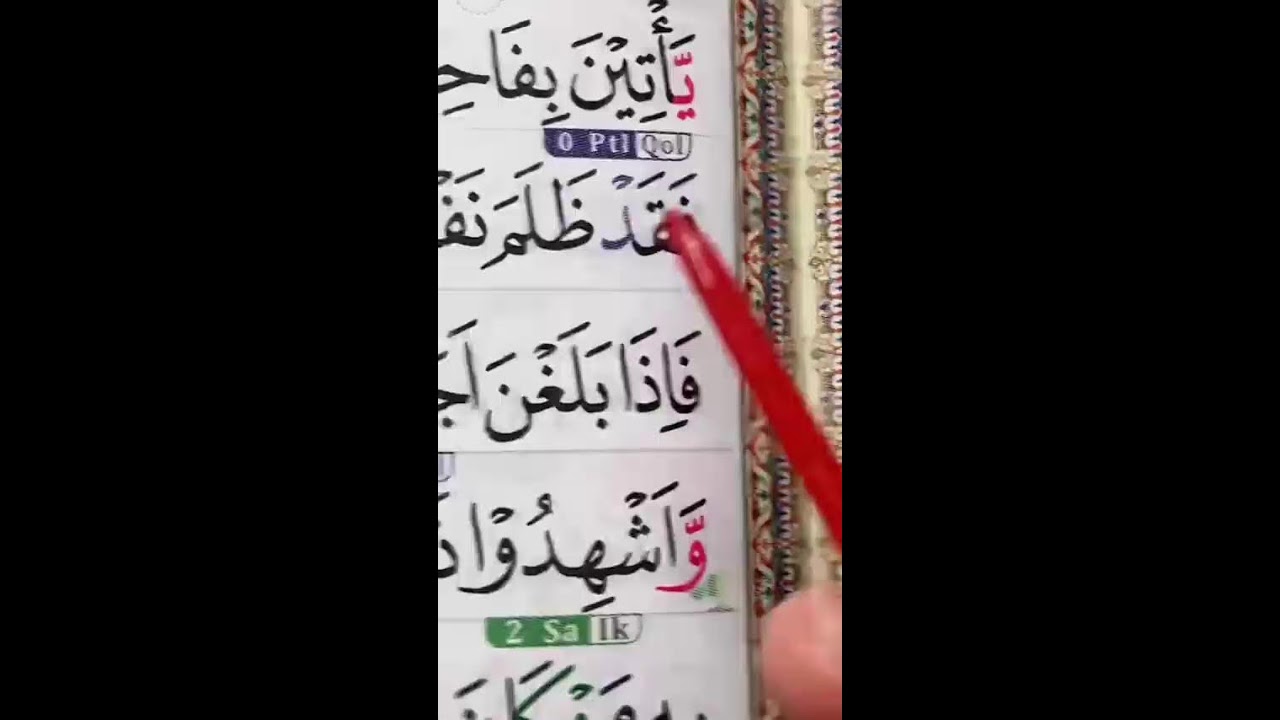 يَّأْتِيْنَ بِفَاحِ
0 Ptl Qol
فَقَدْ ظَلَمَ نَفْ
فَاِذَا بَلَغْنَ اَجَ
وَّاَشْهِدُوْا ذَ
2 Sa Ik
بِهٖ مَنْ كَانَ